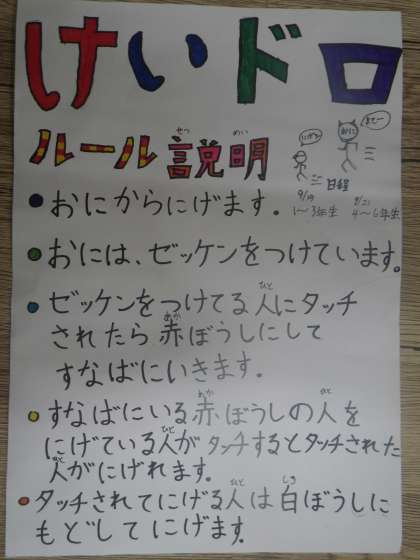 けいドロ
ルール説明
せつ めい
にげろー
まてー
おに
日程
9/19 9/21
1〜3年生 4〜6年生
●おにからにげます。
●おには、ゼッケンをつけています。
●ゼッケンをつけてる人にタッチ
ひと
されたら赤ぼうしにして
あか
すなばにいきます。
●すなばにいる赤ぼうしの人を
あか ひと
にげている人がタッチするとタッチされた
ひと
人がにげれます。
ひと
●タッチされてにげる人は白ぼうしに
ひと しろ
もどしてにげます。